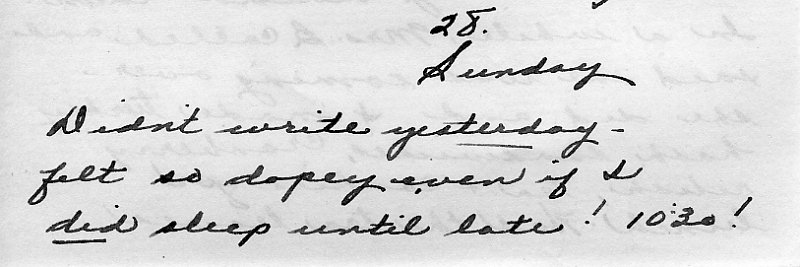 28.
Sunday
Didn't write yesterday -
felt so dopey even if I
did sleep until late! 10:30!